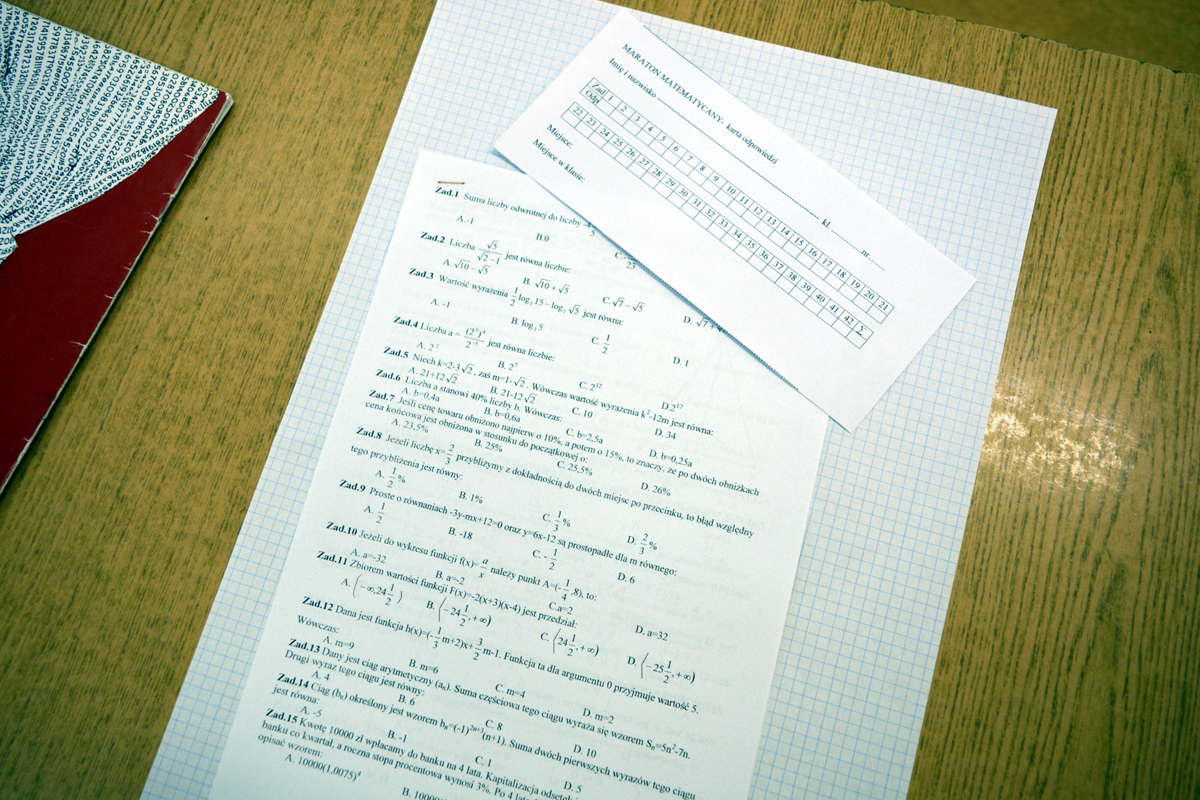 MARATON MATEMATYCANY- karta odpowiedzi
Imię i nazwisko ........................................ kl. ............nr.......
Zad 1 2 3 4 5 6 7 8 9 10 11 12 13 14 15 16 17 18 19 20 21
Odp
22 23 24 25 26 27 28 29 30 31 32 33 34 35 36 37 38 39 40 41 42 Σ
Miejsce:
Miejsce w klasie:
Zad.1 Suma liczby odwrotnej do liczby
A.-1 B.0
Zad.2 Liczba √5/(√2−1) jest równa liczbie:
A. √10 − √5 B. √10 + √5 C. √7 − √5 D. √7 +
Zad.3 Wartość wyrażenia
A. -1 C. 1/2 D. 1
Zad.4 Liczba a = jest równa liczbie:
B. 2⁷ C. 2¹² D.2¹⁷
Zad.5 Niech k=2-3√2, zaś m=1-√2. Wówczas wartość wyrażenia k²-12m jest równa:
A. 21+12√2 B. 21-12√2 C. 10 D. 34
Zad.6 Liczba a stanowi 40% liczby b. Wówczas:
A. b=0,4a B. b=0,6a C. b=2,5a D. b=0,25a
Zad.7 Jeśli cenę towaru obniżono najpierw o 10%, a potem o 15%, to znaczy, że po dwóch obniżkach
cena końcowa jest obniżona w stosunku do początkowej o:
A. 23,5% B. 25% C. 25,5% D. 26%
Zad.8 Jeżeli liczbę x=2/3 przybliżymy z dokładnością do dwóch miejsc po przecinku, to błąd względny
tego przybliżenia jest równy:
A. 1/2% B. 1% C. 1/3% D. 2/3%
Zad.9 Proste o równaniach -3y-mx+12=0 oraz y=6x-12 są prostopadłe dla m równego:
A. 1/2 B. -18 C. -1/2 D. 6
Zad.10 Jeżeli do wykresu funkcji f(x)=a/x należy punkt A=(-1/4,8), to:
A. a=-32 B. a=-2 C.a=2 D. a=32
Zad.11 Zbiorem wartości funkcji F(x)=-2(x+3)(x-4) jest przedział:
A. (−∞,24 1/2⟩ B. ⟨−24 1/2,+∞) C. ⟨24 1/2,+∞) D. ⟨−25 1/2,+∞)
Zad.12 Dana jest funkcja h(x)=(-1/3m+2)x+3/2m-1. Funkcja ta dla argumentu 0 przyjmuje wartość 5.
Wówczas:
A. m=9 B. m=6 C. m=4 D. m=2
Zad.13 Dany jest ciąg arytmetyczny (aₙ). Suma częściowa tego ciągu wyraża się wzorem Sₙ=5n²-7n.
Drugi wyraz tego ciągu jest równy:
A. 4 B. 6 C. 8 D. 10
Zad.14 Ciąg (bₙ) określony jest wzorem bₙ=(-1)²ⁿ⁺³(n+1). Suma dwóch pierwszych wyrazów tego ciągu
jest równa:
A. -5 B. -1 C. 1 D. 5
Zad.15 Kwotę 10000 zł wpłacamy do banku na 4 lata. Kapitalizacja
banku co kwartał, a roczna stopa procentowa wynosi 3%. Po 4
opisać wzorem:
A. 10000(1,0075)⁴